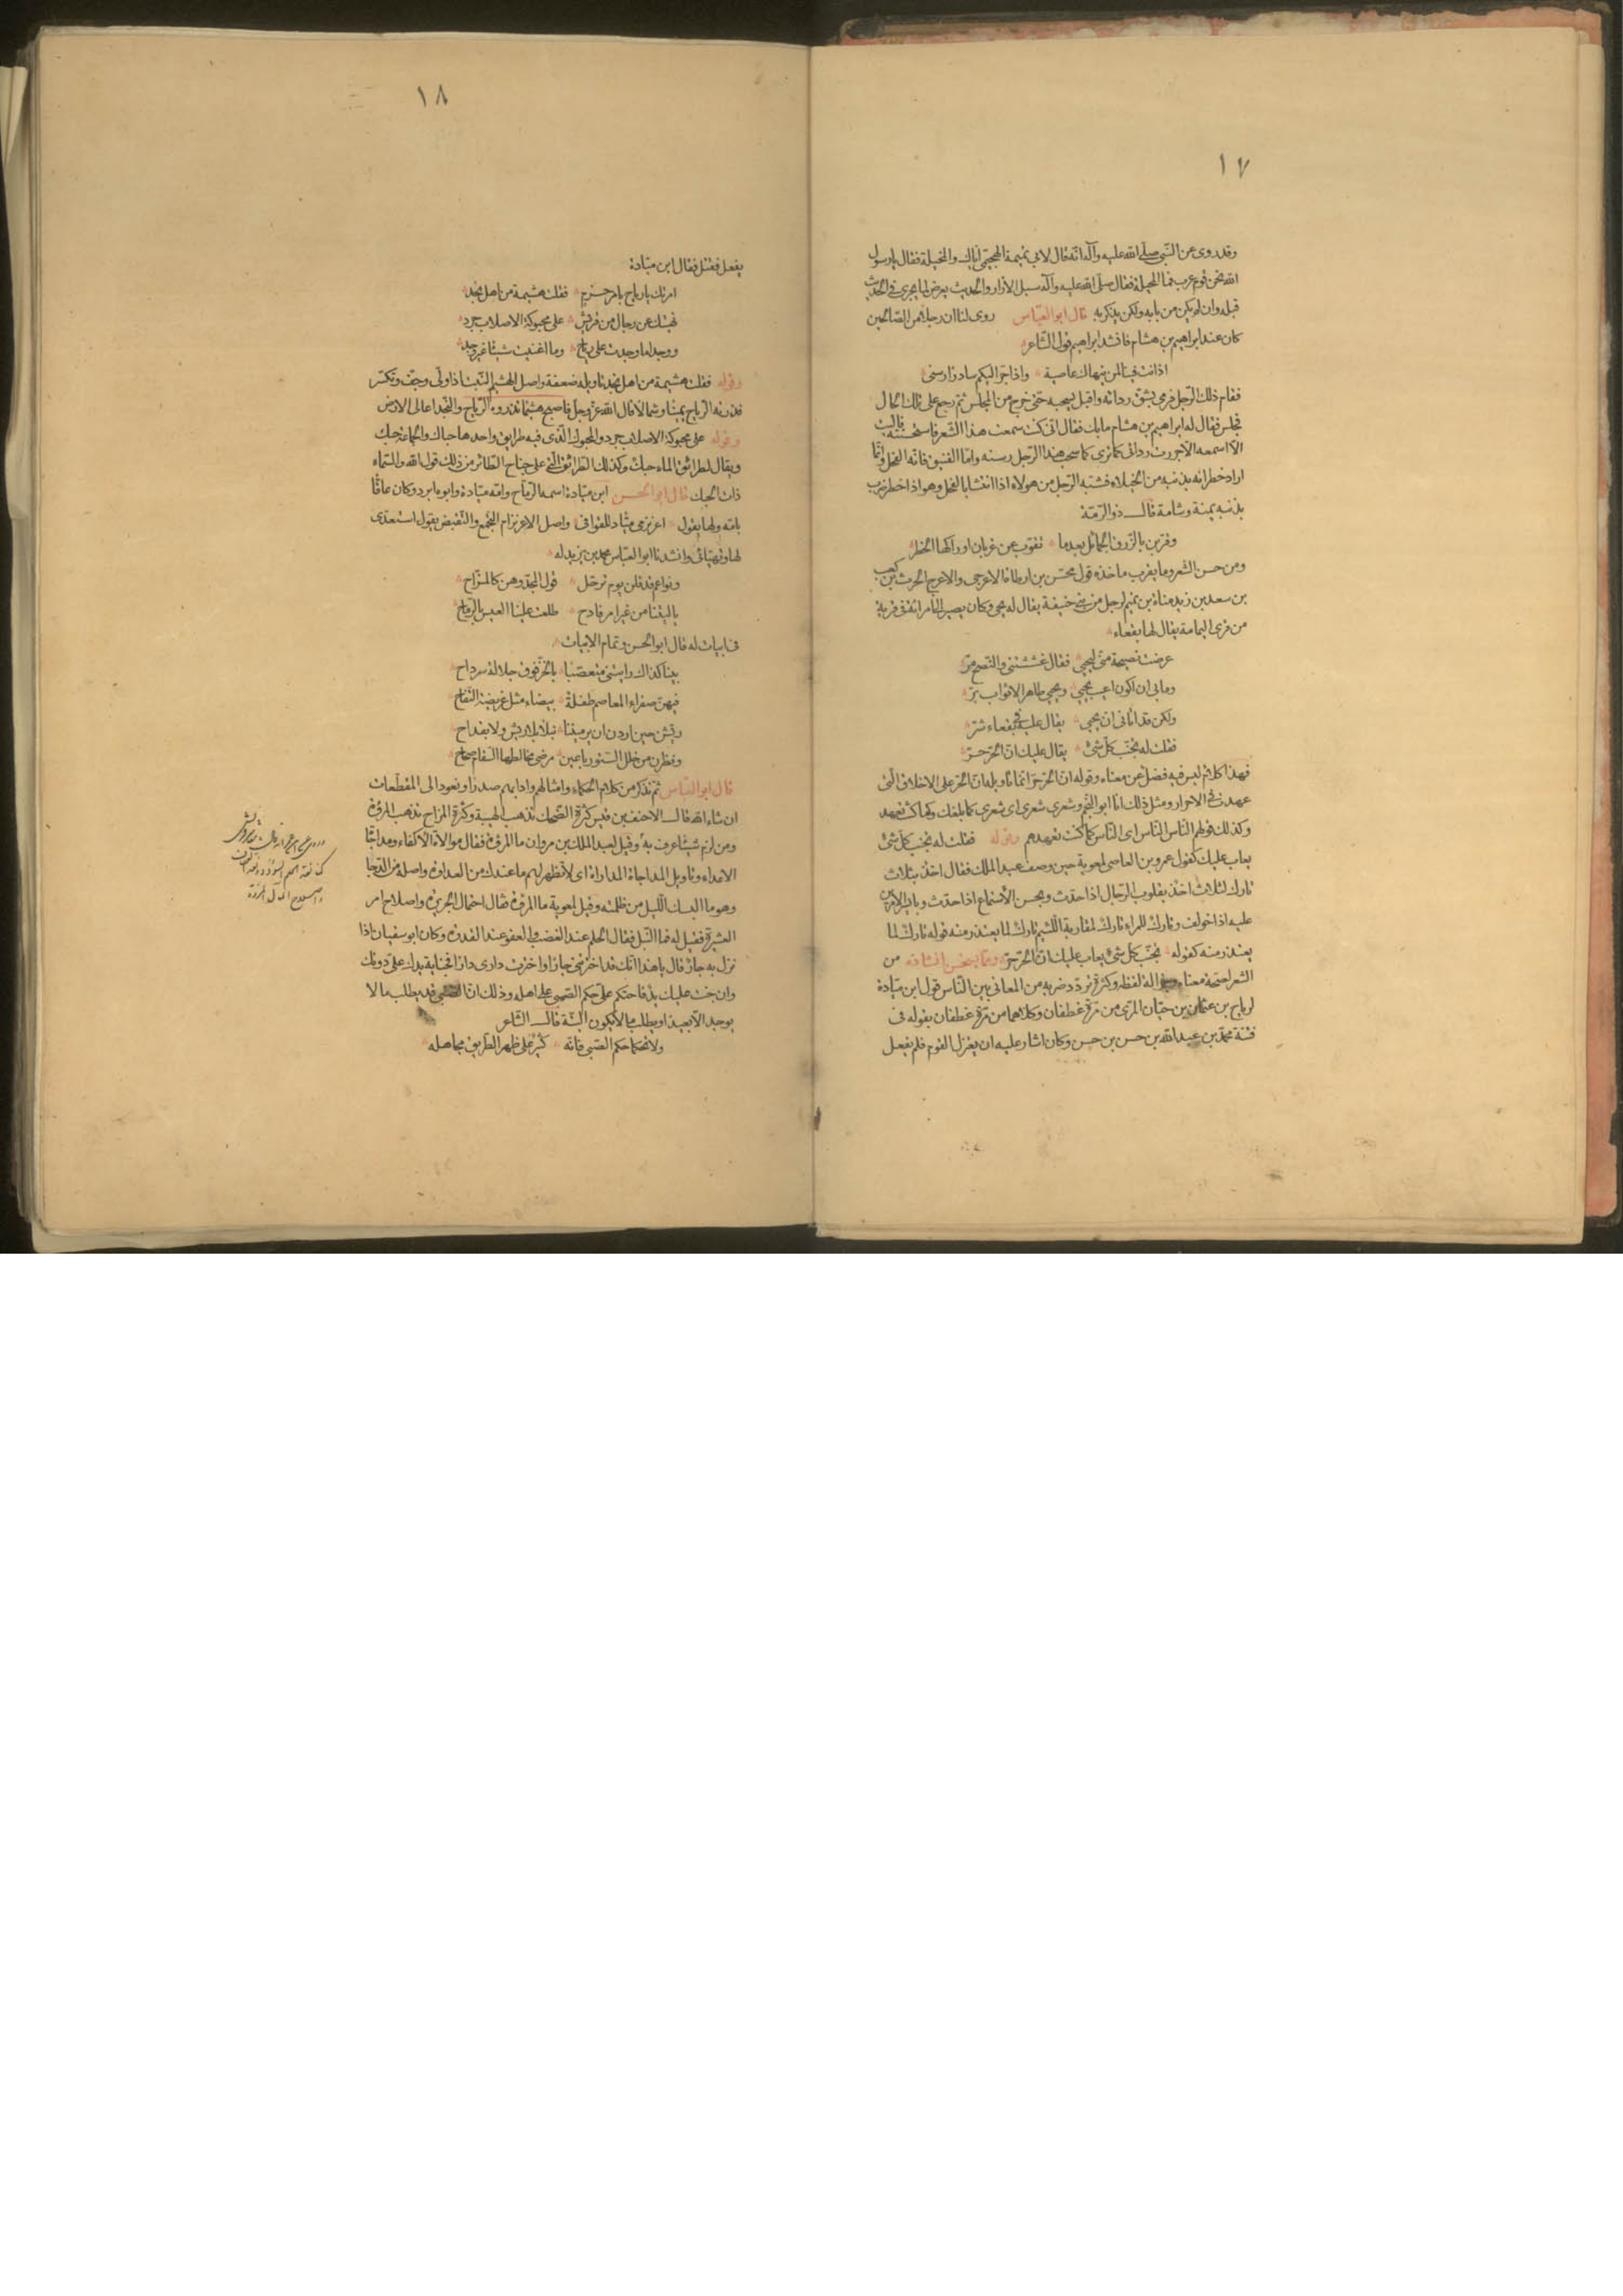 ١٧
وقد روى عن النبى صلى الله عليه وآله انه قال لابى تميمة الهجيمى اياك والمخيلة فقال يا رسول
الله نحن قوم عرب فما المخيلة فقال صلى الله عليه وآله سبل الازار والحديث يعرض لما يجرى فى الحديث
قبله وان لم يكن من بابه ولكن يذكر به قال ابو العباس روى لنا ان رجلا من الصالحين
كان عند ابراهيم بن هشام فانشد ابراهيم قول الشاعر
اذ انت فينا لمن ينهاك عاصية واذ اجر اليكم سادرا رسنى
فقام ذلك الرجل فرمى بشق ردائه واقبل يسحبه حتى خرج من المجلس ثم رجع على تلك الحال
فجلس فقال له ابراهيم بن هشام ما بك فقال انى كنت سمعت هذا الشعر فاستحسنته فآليت
الا اسمعه الا جررت ردائى كما ترى كما سحب هذا الرجل رسنه واما الفنيق فانه الفحل وانما
اراد خطرانه بذنبه من الخيلاء فشبه الرجل من هولاء اذا انتشا بالفحل وهو اذا خطر ضرب
بذنبه يمنة وشامة قال ذو الرمة
وقربن بالزرق الجمائل بعدما تقوب عن غربان اوراكها الخطر
ومن حسن الشعر وما يقرب ماخذه قول محيس بن ارطاة الاعرجى والاعرج الحرث بن كعب
بن سعد بن زيد مناة بن تميم لرجل من بنى حنيفة يقال له يحيى وكان يصير الى امراة فى قرية
من قرى اليمامة يقال لها بقعاء
عرضت نصيحة منى ليحيى فقال غششتنى والنصح مر
وما بى ان اكون اعيب يحيى ويحيى طاهر الاثواب بر
ولكن قد اتانى ان يحيى يقال عليه فى بقعاء شر
فقلت له تجنب كل شئ يقال عليك ان الحر حر
فهذا كلام ليس فيه فضل عن معناه وقوله ان الحر حر انما تاويله ان الحر على الاخلاق التى
عهدت فى الاحرار ومثل ذلك انا ابو النجم وشعرى شعرى اى شعرى كما بلغك وكما كنت تعهد
وكذلك قولهم الناس الناس اى الناس كما كنت تعهدهم وقوله فقلت له تجنب كل شئ
يعاب عليك كقول عمرو بن العاصى لمعوية حين وصف عبد الملك فقال اخذ بثلاث
تارك لثلاث اخذ بقلوب الرجال اذا حدث وبحسن الاستماع اذا حدث وبايسر الامرين
عليه اذا خولف وتارك للمراء تارك لمقاربة اللئيم تارك لما يعتذر منه قوله تارك لما
يعتذر منه كقوله تجنب كل شئ يعاب عليك ان الحر حر ومما يستحسن انشاده من
الشعر لصحة معناه وجزالة لفظه وكثرة تردد ضربه من المعانى بين الناس قول ابن ميادة
لرياح بن عثمان بن حيان المرى من مرة غطفان وكلاهما من مرة غطفان بقوله فى
فتنة محمد بن عبد الله بن حسن بن حسن وكان اشار عليه ان يعتزل القوم فلم يفعل
١٨
يفعل فقتل فقال ابن ميادة
امرتك يا رياح بامر حزم فقلت هشيمة من اهل نجد
نهيتك عن رجال من قريش على محبوكة الاصلاب جرد
ووجدا ما وجدت على رياح وما اغنيت شيئا غير وجد
وقوله فقلت هشيمة من اهل نجد تاويله ضعفة واصل الهشيم النبت اذا ولى وجف وتكسر
فذرته الرياح يمينا وشمالا قال الله عز وجل فاصبح هشيما تذروه الرياح والنجد اعالى الارض
وقوله على محبوكة الاصلاب جرد والمحبوك الذى فيه طرايق واحدها حباك والجماعة حبك
ويقال لطرائق الماء حبك وكذلك الطرائق التى على جناح الطائر من ذلك قول الله والسماء
ذات الحبك قال ابو الحسن ابن ميادة اسمه الرماح وامه ميادة وابوه ابرد وكان عاقا
بامه ولها يقول اعرنزمى مياد للقوافى واصل الاعرنزام التجمع والتقبض يقول استعدى
لها وتهيائى وانشدنا ابو العباس محمد بن يزيد له
ونواعم قد قلن يوم ترحل قول المجد وهن كالمزاح
يا ليتنا من غير امر فادح طلعت علينا العيس بالرماح
فى ابيات له قال ابو الحسن وتمام الابيات
بينا كذاك رايننى متعصبا بالخز فوق جلالة سرداح
فيهن صفراء المعاصم طفلة بيضاء مثل غريضة التفاح
ريشن حين اردن ان يرميننا نبلا بلا ريش ولا بقداح
ونظرن من خلل الستور باعين مرضى مخالطها السقام صحاح
قال ابو العباس ثم نذكر من كلام الحكماء وامثالهم وادابهم صدرا ونعود الى المقطعات
ان شاء الله قال الاحنف بن قيس كثرة الضحك تذهب الهيبة وكثرة المزاح تذهب المروة
ومن لزم شيئا عرف به وقيل لعبد الملك بن مروان ما المروة فقال موالاة الاكفاء ومداجاة
الاعداء وتاويل المداجاة المداراة اى لا تظهر لهم ما عندك من العداوة واصله من الدجا
وهو ما البسك الليل من ظلمته وقيل لمعوية ما المروة فقال احتمال الجريرة واصلاح امر
العشيرة فقيل له فما النبل فقال الحلم عند الغضب والعفو عند القدرة وكان ابو سفيان اذا
نزل به جار قال يا هذا انك قد اخترتنى جارا واخترت دارى دارا فجناية يدك على دونك
وان جنت عليك يد فاحتكم على حكم الصبى على اهله وذلك ان الصبى قد يطلب ما لا
يوجد الا بعيدا ويطلب ما لا يكون البتة قال الشاعر
ولا تحكما حكم الصبى فانه كثير على ظهر الطريق مجاهله